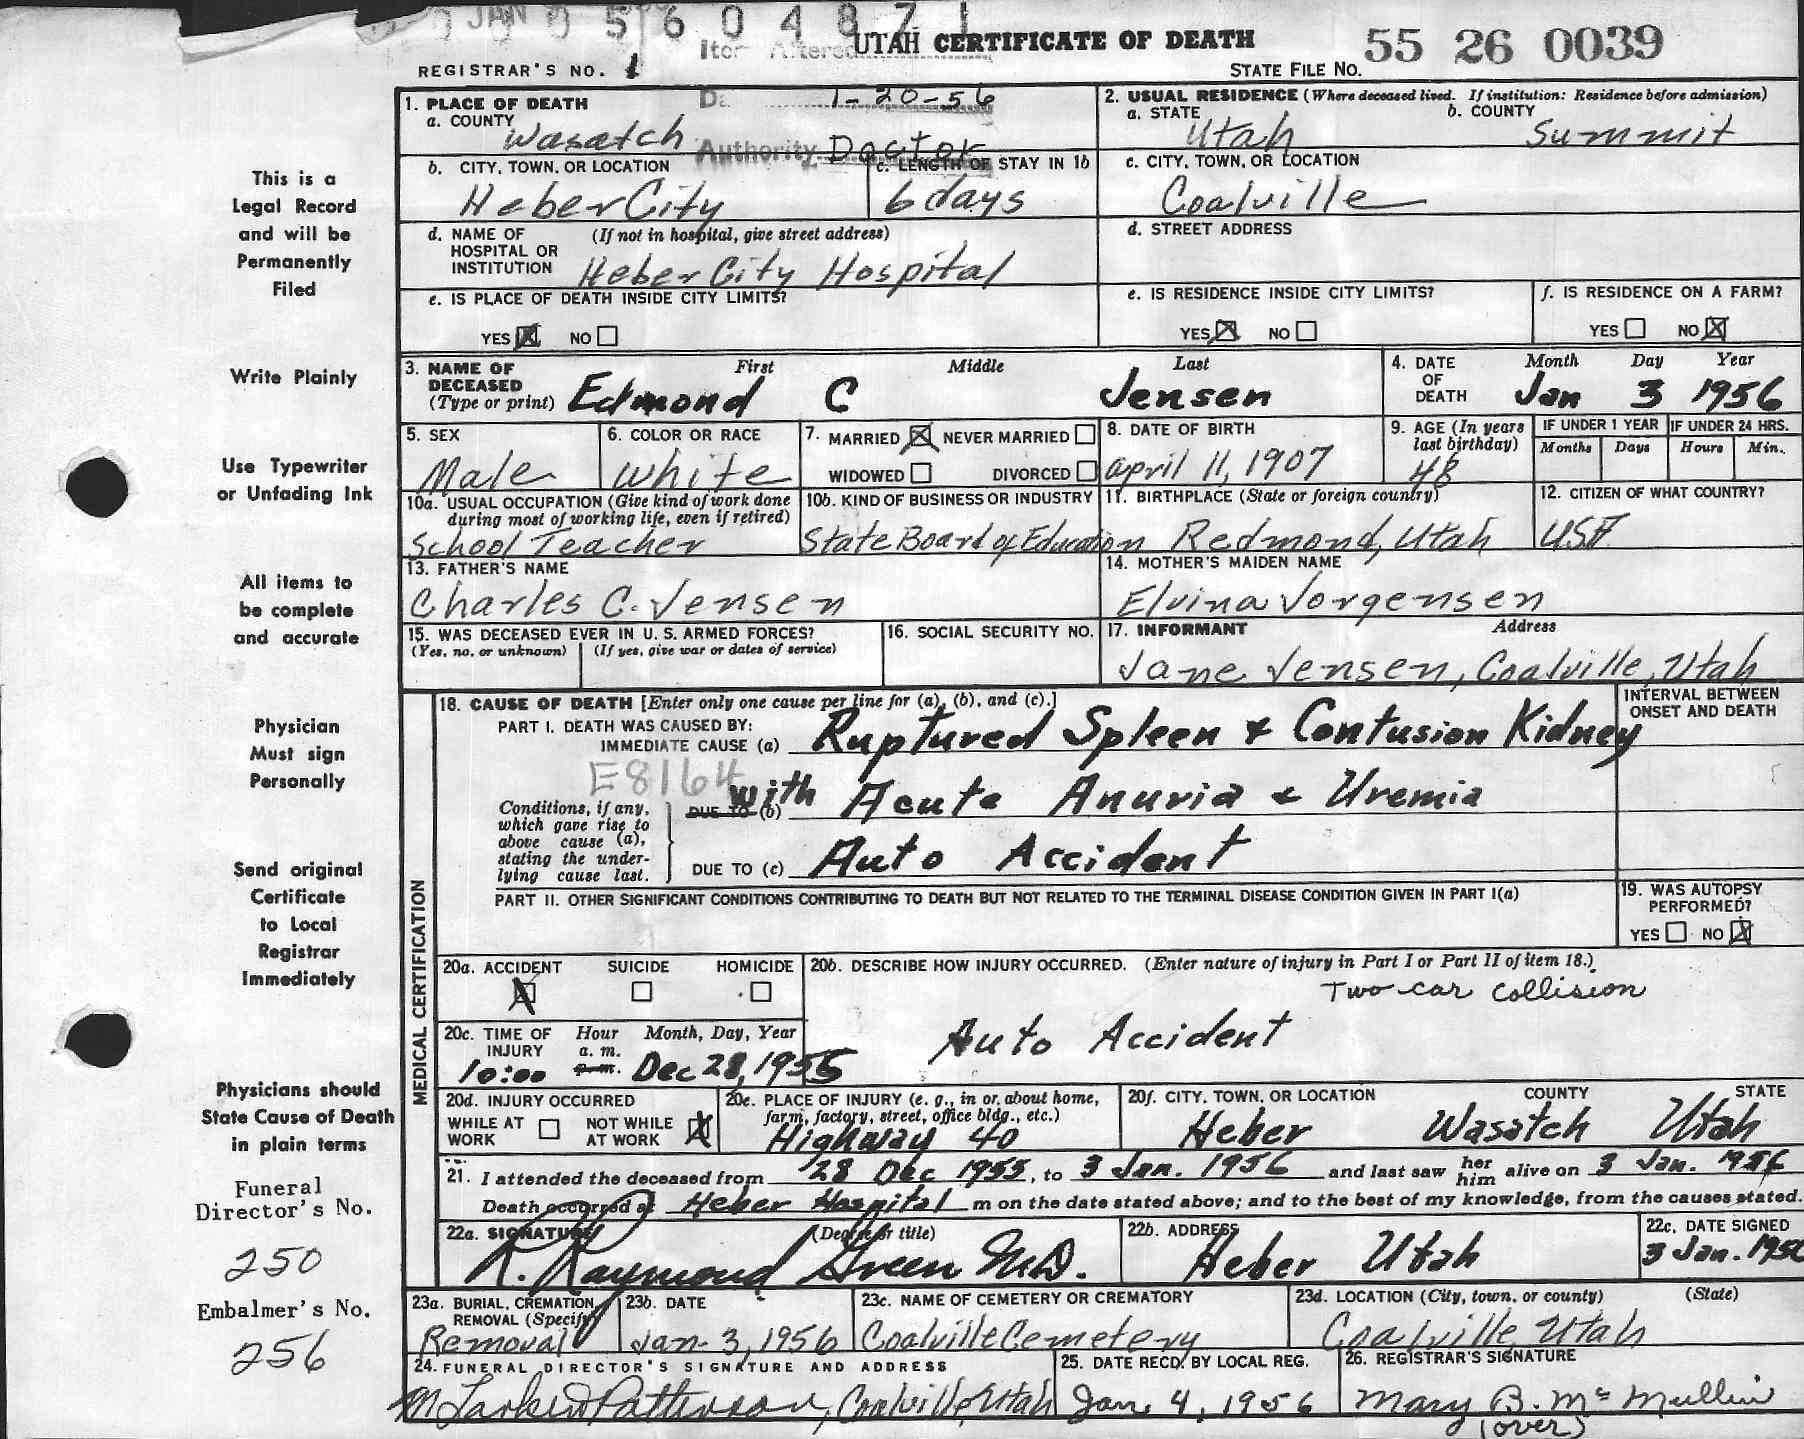 JAN
0 5 6 0 4 8 7 1
Item Altered
UTAH CERTIFICATE OF DEATH
55 26 0039
REGISTRAR'S NO. 1
STATE FILE NO.
1. PLACE OF DEATH
a. COUNTY
Wasatch
1-20-56
Authority Doctor
2. USUAL RESIDENCE (Where deceased lived. If institution: Residence before admission)
a. STATE
Utah
b. COUNTY
Summit
b. CITY, TOWN, OR LOCATION
Heber City
c. LENGTH OF STAY IN 1b
6 days
c. CITY, TOWN, OR LOCATION
Coalville
d. NAME OF HOSPITAL OR INSTITUTION
(If not in hospital, give street address)
Heber City Hospital
d. STREET ADDRESS
e. IS PLACE OF DEATH INSIDE CITY LIMITS?
YES NO
e. IS RESIDENCE INSIDE CITY LIMITS?
YES NO
f. IS RESIDENCE ON A FARM?
YES NO
3. NAME OF DECEASED (Type or print)
First Middle Last
Edmond C Jensen
4. DATE OF DEATH
Month Day Year
Jan 3 1956
5. SEX
Male
6. COLOR OR RACE
White
7. MARRIED NEVER MARRIED
WIDOWED DIVORCED
8. DATE OF BIRTH
April 11, 1907
9. AGE (In years last birthday)
48
IF UNDER 1 YEAR
Months Days
IF UNDER 24 HRS.
Hours Min.
10a. USUAL OCCUPATION (Give kind of work done during most of working life, even if retired)
School Teacher
10b. KIND OF BUSINESS OR INDUSTRY
State Board of Education
11. BIRTHPLACE (State or foreign country)
Redmond, Utah
12. CITIZEN OF WHAT COUNTRY?
USA
13. FATHER'S NAME
Charles C. Jensen
14. MOTHER'S MAIDEN NAME
Elvina Jorgensen
15. WAS DECEASED EVER IN U. S. ARMED FORCES?
(Yes, no, or unknown) (If yes, give war or dates of service)
16. SOCIAL SECURITY NO.
17. INFORMANT Address
Jane Jensen, Coalville, Utah
MEDICAL CERTIFICATION
18. CAUSE OF DEATH [Enter only one cause per line for (a), (b), and (c).]
INTERVAL BETWEEN ONSET AND DEATH
PART I. DEATH WAS CAUSED BY:
IMMEDIATE CAUSE (a) Ruptured Spleen & Contusion Kidney
E8164
Conditions, if any, which gave rise to above cause (a), stating the underlying cause last.
with
DUE TO (b) Acute Anuria & Uremia
DUE TO (c) Auto Accident
PART II. OTHER SIGNIFICANT CONDITIONS CONTRIBUTING TO DEATH BUT NOT RELATED TO THE TERMINAL DISEASE CONDITION GIVEN IN PART I(a)
19. WAS AUTOPSY PERFORMED?
YES NO
20a. ACCIDENT SUICIDE HOMICIDE
20b. DESCRIBE HOW INJURY OCCURRED. (Enter nature of injury in Part I or Part II of item 18.)
Two car collision
Auto Accident
20c. TIME OF INJURY
Hour Month, Day, Year
a. m.
p. m.
10:00 Dec 28, 1955
20d. INJURY OCCURRED
WHILE AT WORK NOT WHILE AT WORK
20e. PLACE OF INJURY (e. g., in or about home, farm, factory, street, office bldg., etc.)
Highway 40
20f. CITY, TOWN, OR LOCATION COUNTY STATE
Heber Wasatch Utah
21. I attended the deceased from 28 Dec 1955, to 3 Jan. 1956 and last saw her him alive on 3 Jan. 1956
Death occurred at Heber Hospital m on the date stated above; and to the best of my knowledge, from the causes stated.
22a. SIGNATURE (Degree or title)
R. Raymond Green M.D.
22b. ADDRESS
Heber Utah
22c. DATE SIGNED
3 Jan. 1956
23a. BURIAL, CREMATION, REMOVAL (Specify)
Removal
23b. DATE
Jan. 3, 1956
23c. NAME OF CEMETERY OR CREMATORY
Coalville Cemetery
23d. LOCATION (City, town, or county) (State)
Coalville, Utah
24. FUNERAL DIRECTOR'S SIGNATURE AND ADDRESS
Patterson, Coalville, Utah
25. DATE RECD. BY LOCAL REG.
Jan 4, 1956
26. REGISTRAR'S SIGNATURE
Mary B. McMullin
(over)
This is a
Legal Record
and will be
Permanently
Filed
Write Plainly
Use Typewriter
or Unfading Ink
All items to
be complete
and accurate
Physician
Must sign
Personally
Send original
Certificate
to Local
Registrar
Immediately
Physicians should
State Cause of Death
in plain terms
Funeral
Director's No.
250
Embalmer's No.
256